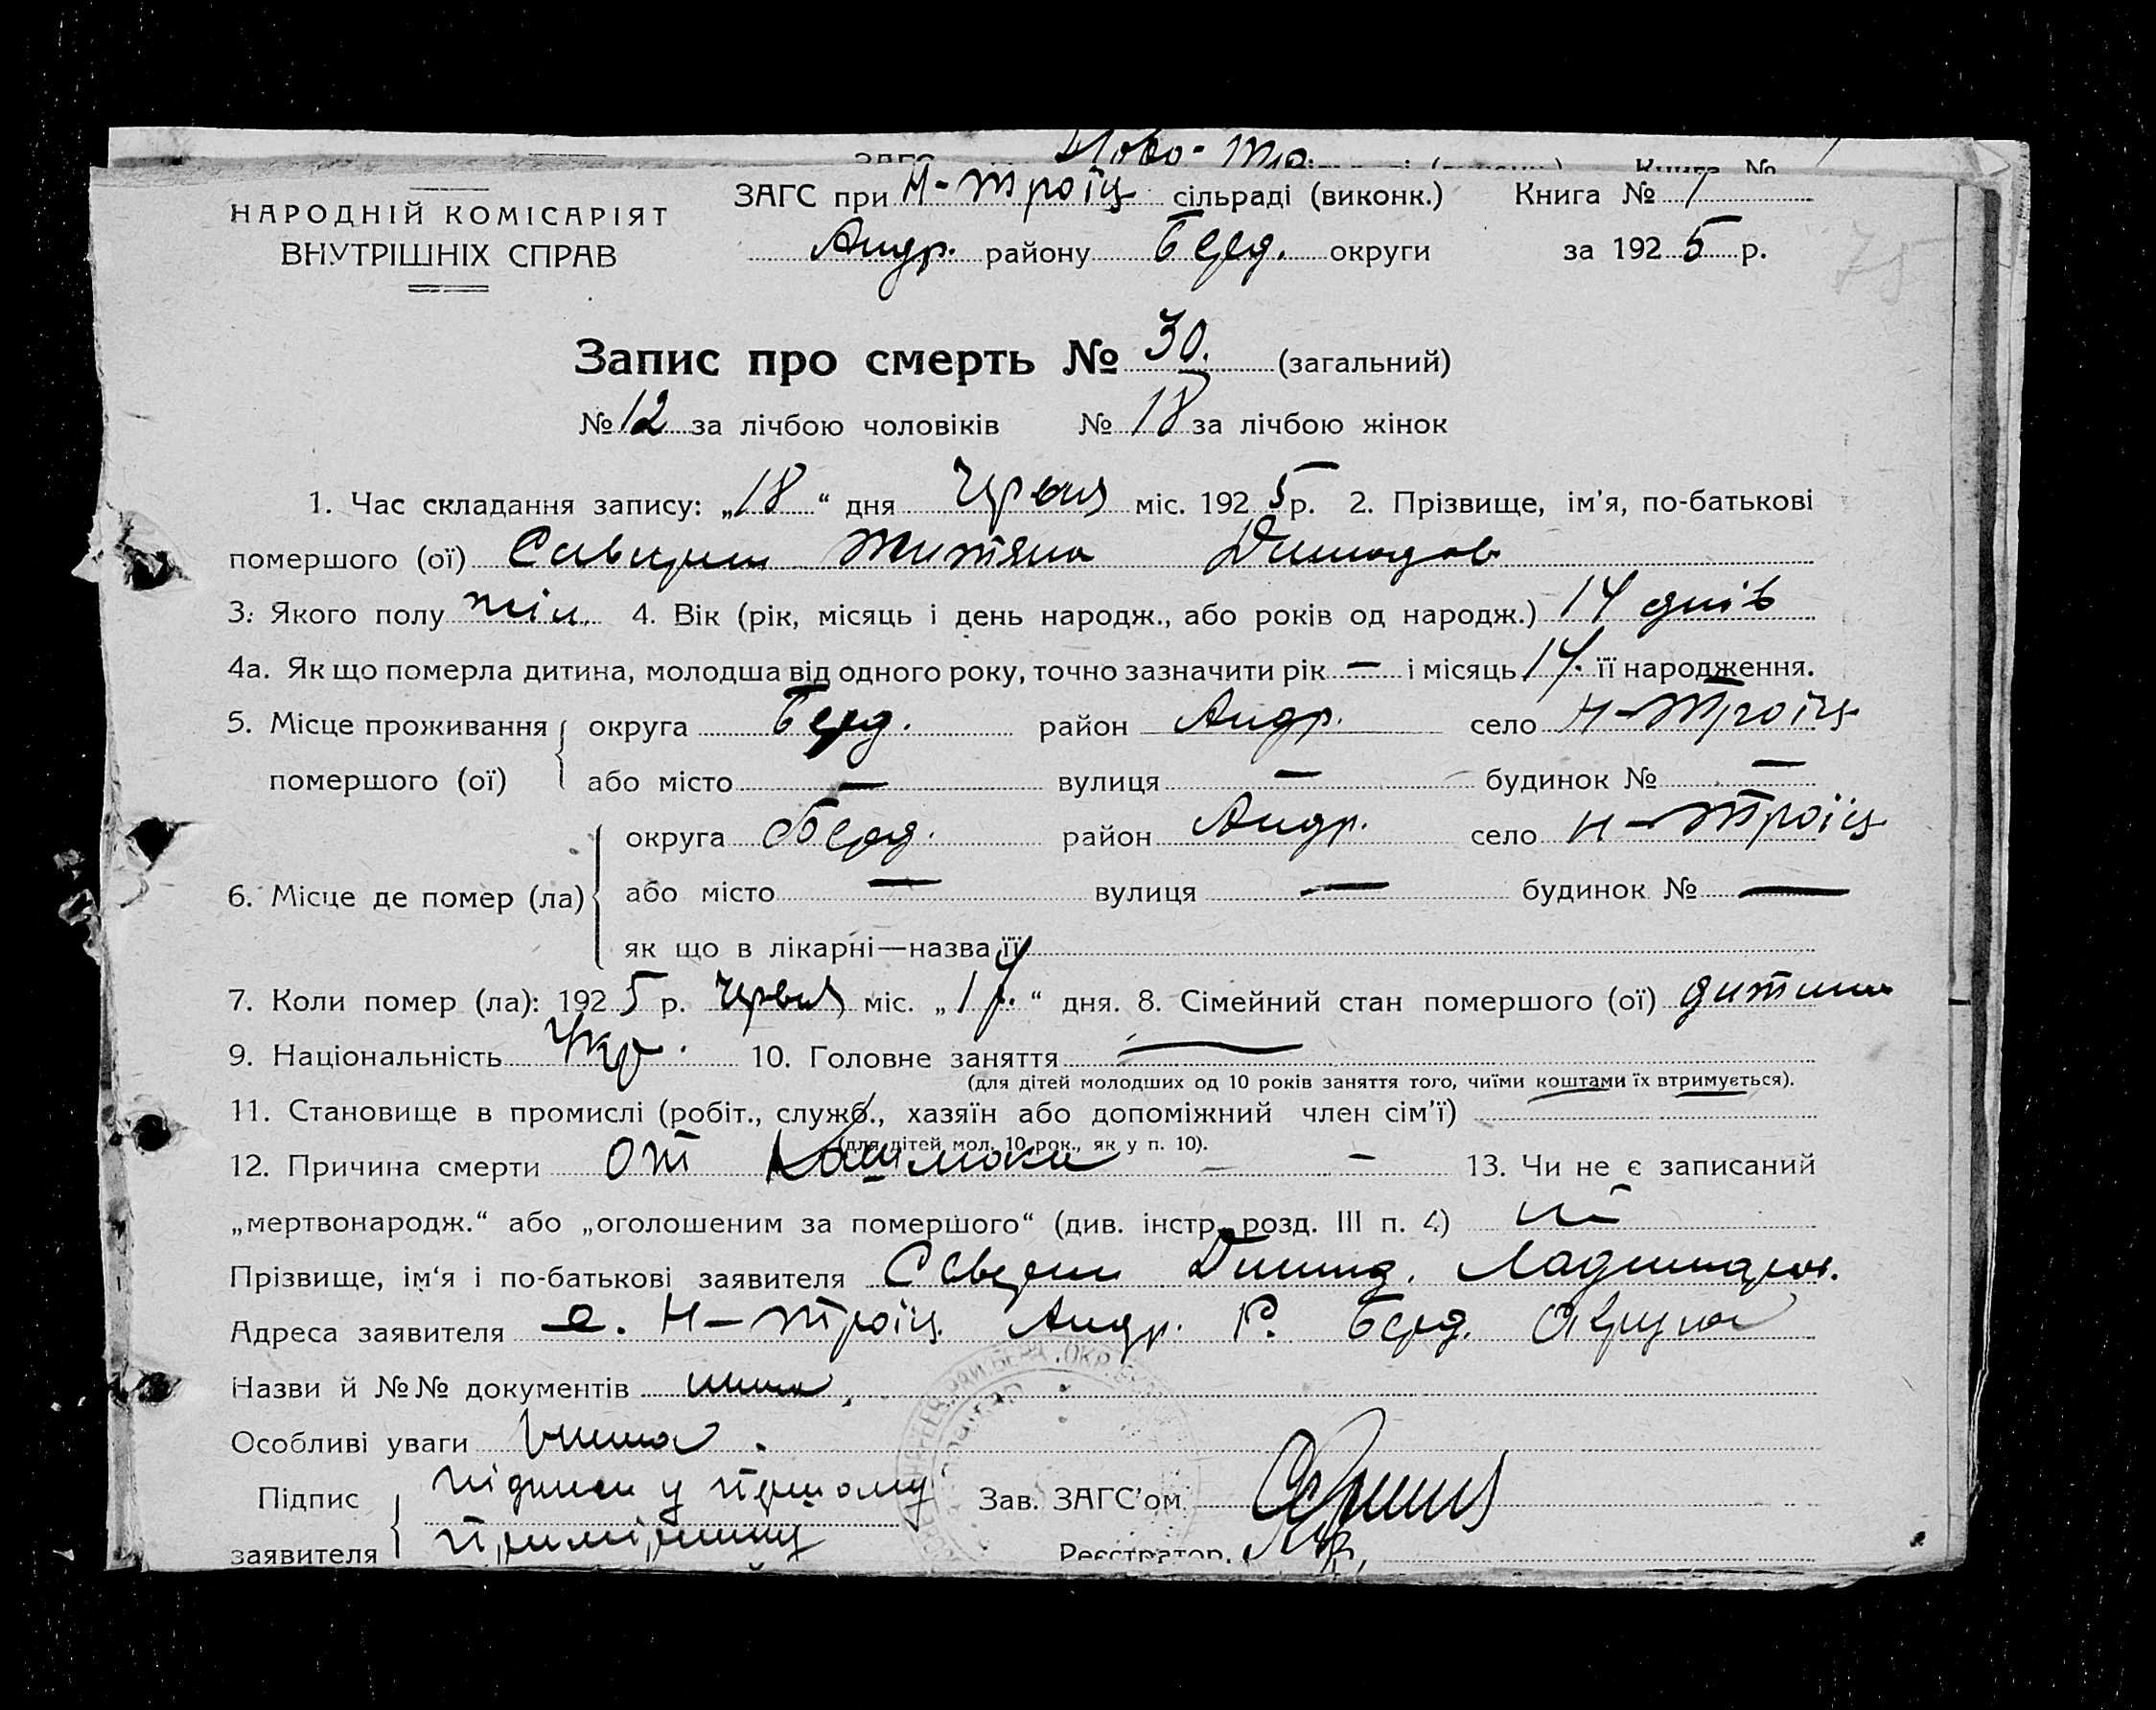 Ново-Тро
ЗАГС при Н-Троїц сільраді (виконк.) Книга № 1
НАРОДНІЙ КОМІСАРІЯТ
ВНУТРІШНІХ СПРАВ
Андр. району Берд. округи за 1925 р.
75
Запис про смерть № 30. (загальний)
№ 12 за лічбою чоловіків № 18 за лічбою жінок
1. Час складання запису: „18“ дня Червня міс. 1925 р. 2. Прізвище, ім'я, по-батькові
помершого (ої)
3. Якого полу жін. 4. Вік (рік, місяць і день народж., або років од народж.) 14 днів
4а. Як що померла дитина, молодша від одного року, точно зазначити рік — і місяць 14. її народження.
5. Місце проживання округа Берд. район Андр. село Н-Троїц
помершого (ої) або місто — вулиця — будинок № —
округа Берд. район Андр. село Н-Троїц
6. Місце де помер (ла) або місто — вулиця — будинок № —
як що в лікарні—назва її
7. Коли помер (ла): 1925 р. Червня міс. „ “ дня. 8. Сімейний стан помершого (ої) дитина
9. Національність Укр. 10. Головне заняття —
(для дітей молодших од 10 років заняття того, чиїми коштами їх втримується).
11. Становище в промислі (робіт., служб., хазяїн або допоміжний член сім'ї)
(для дітей мол. 10 рок., як у п. 10).
12. Причина смерти от — — 13. Чи не є записаний
„мертвонародж.“ або „оголошеним за помершого“ (див. інстр. розд. III п. 4) ні
Прізвище, ім'я і по-батькові заявителя
Адреса заявителя с. Н-Троїц. Андр. Р. Берд. Округи
Назви й №№ документів нема.
Особливі уваги Нема.
Підпис підписи у першому Зав. ЗАГС'ом
заявителя примірнику Реєстратор